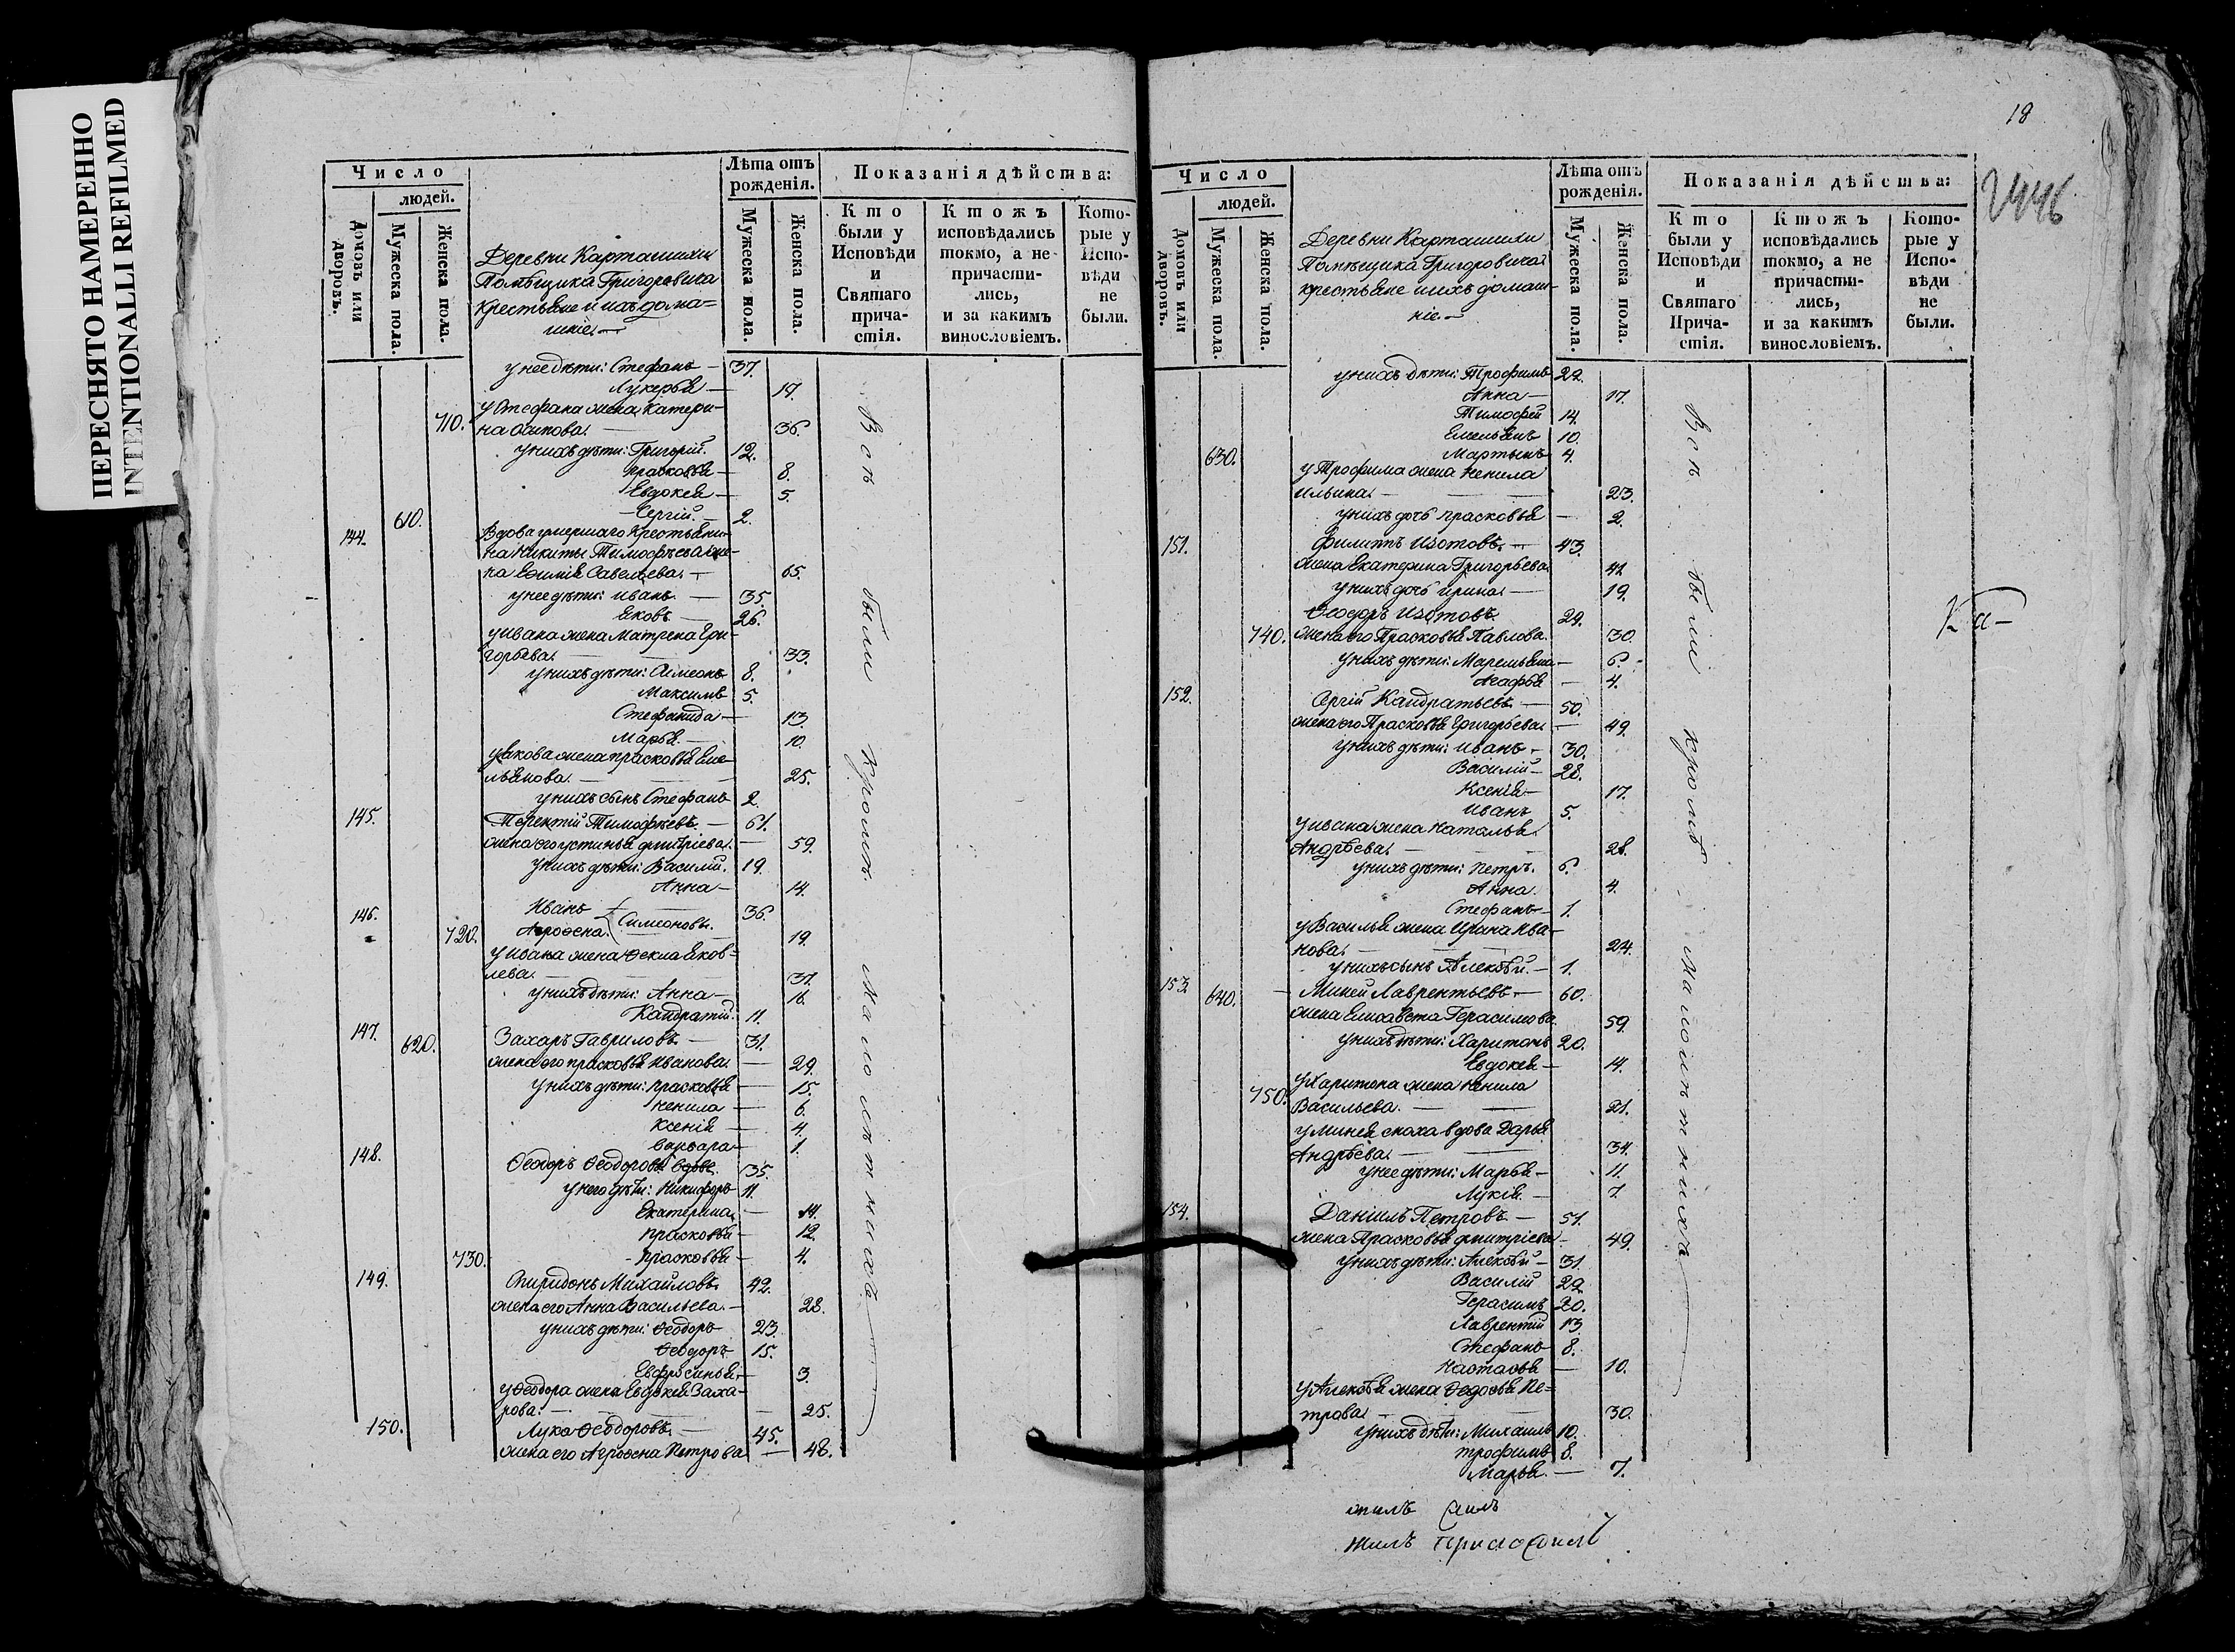 ПЕРЕСНЯТО НАМЕРЕННО
INTENTIONALLI REFILMED
Число
людей.
Домовъ или дворовъ.
Мужеска пола.
Женска пола.
Деревни Карташихи
Помѣщика Григоровича
Крестьяне и ихъ дома=
шніе.—
Лѣта отъ рожденія.
Мужеска пола.
Женска пола.
Показанія дѣйства:
Кто были у Исповѣди и Святаго причастія.
Ктожъ исповѣдались токмо, а не причастились, и за какимъ винословіемъ.
Которые у Исповѣди не были.
у нее дѣти: Стефанъ — 37.
Лукерья — 17.
у Стефана жена Катери-
710. на Осипова. — 36.
у нихъ дѣти: Григорій. 12.
Прасковья — 8.
Евдокея — 5.
610. Сергій. — 2.
144. Вдова умершаго Крестьяни-
на Никиты Тимофѣева же-
на Ефимія Савельева. — 65.
у нее дѣти: Иванъ. — 35.
Яковъ — 26.
у Ивана жена Матрена Гри-
горьева. — 33.
у нихъ дѣти: Симеонъ 8.
Максимъ 5.
Стефанида — 13.
Марья. — 10.
у Якова жена Прасковья Еме-
льянова. — 25.
у нихъ сынъ Стефанъ 2.
145. Терентій Тимофѣевъ. — 61.
жена его Устинья Дмитріева. — 59.
у нихъ дѣти: Василій. 19.
Анна — 14.
146. Иванъ — 36.
720. Агрофена. Симеоновы. 19.
у Ивана жена Фекла Яков=
лева. — 31.
у нихъ дѣти: Анна — 16.
Кандратій. 11.
147. 620. Захаръ Гавриловъ. — 31.
жена его Прасковья Иванова. — 29.
у нихъ дѣти: Прасковья — 15.
Ненила — 6.
Ксенія — 4.
Варвара — 1.
148. Ѳеодоръ Ѳеодоровъ вдовъ. 35.
у него дѣти: Никифоръ 11.
Екатерина — 14.
Прасковья — 12.
730. Прасковья — 4.
149. Спиридонъ Михайловъ. 42.
жена его Анна Васильева. — 28.
у нихъ дѣти: Ѳеодоръ 23.
Ѳеодоръ 15.
Евфросинья. — 3.
у Ѳеодора жена Евдокея Заха-
рова. — 25.
150. Лука Ѳеодоровъ. — 45.
жена его Агрофена Петрова — 48.
Всѣ были кромѣ малолѣтнихъ
18
Число
людей.
Домовъ или дворовъ.
Мужеска пола.
Женска пола.
Деревни Карташихи
Помѣщика Григоровича
крестьяне и ихъ домаш-
ніе.—
Лѣта отъ рожденія.
Мужеска пола.
Женска пола.
Показанія дѣйства:
Кто были у Исповѣди и Святаго Причастія.
Ктожъ исповѣдались токмо, а не причастились, и за какимъ винословіемъ.
Которые у Исповѣди не были.
у нихъ дѣти: Трофимъ 22.
Анна — 17.
Тимофей 14.
Емельянъ 10.
630. Мартынъ 4.
у Трофима жена Ненила
Ильина. — 23.
у нихъ дочь Прасковья — 2.
151. Филиппъ Изотовъ. — 43.
жена Екатерина Григорьева. 42.
у нихъ дочь Ирина. — 19.
Ѳеодоръ Изотовъ. 29.
740. жена его Прасковья Павлова. 30.
у нихъ дѣти: Маремьяна — 6.
Агафья — 4.
152. Сергій Кандратьевъ. — 50.
жена его Прасковья Григорьева. — 49.
у нихъ дѣти: Иванъ — 30.
Василій — 28.
Ксенія — 17.
Иванъ 5.
у Ивана жена Наталья
Андрѣева. — 28.
у нихъ дѣти: Петръ. 6.
Анна. 4.
Стефанъ — 1.
у Василья жена Ирина Ива-
нова. — 24.
у нихъ сынъ Алексѣй. — 1.
153. 640. Миней Лаврентьевъ. — 60.
жена Елисавета Герасимова 59.
у нихъ дѣти: Харитонъ 20.
Евдокея — 14.
у Харитона жена Ненила
750. Васильева. — 21.
у Минея сноха вдова Дарья
Андрѣева. — 34.
у нее дѣти: Марья — 11.
Лукія. — 7.
154. Даніилъ Петровъ — 51.
жена Прасковья Дмитріева — 49.
у нихъ дѣти: Алексѣй — 31.
Василій 29.
Герасимъ 20.
Лаврентій 13.
Стефанъ 8.
Настасья — 10.
у Алексѣя жена Федосья Пе=
трова. — 30.
у нихъ дѣти: Михаилъ 10.
Трофимъ 8.
Марья. — 7.
Всѣ были кромѣ малолѣтнихъ